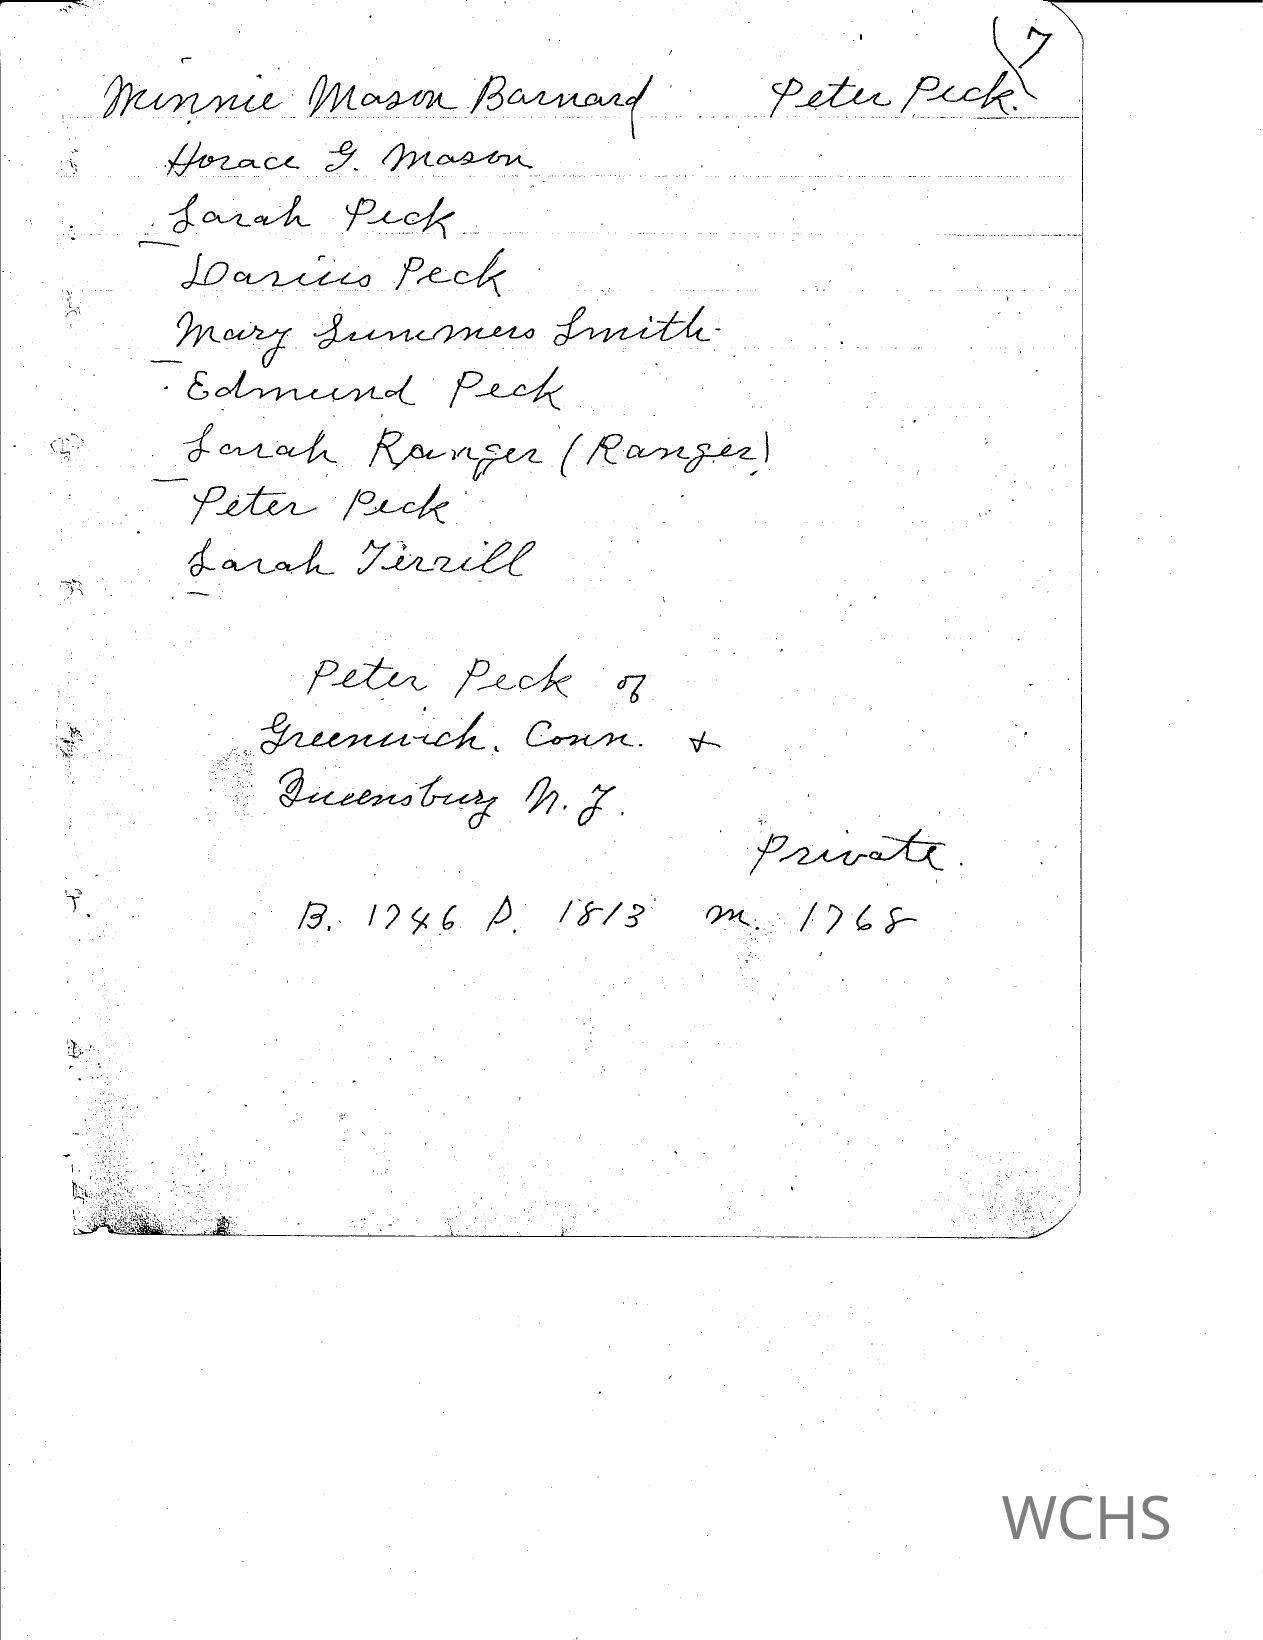 7
Minnie Mason Barnard Peter Peck.
Horace G. Mason
Sarah Peck
Darius Peck
Mary Summers Smith
Edmund Peck
Sarah Ranger (Ranger)
Peter Peck
Sarah Terrill
Peter Peck of
Greenwich, Conn. +
Queensbury N.Y.
Private.
B. 1746 D. 1813 m. 1768
WCHS